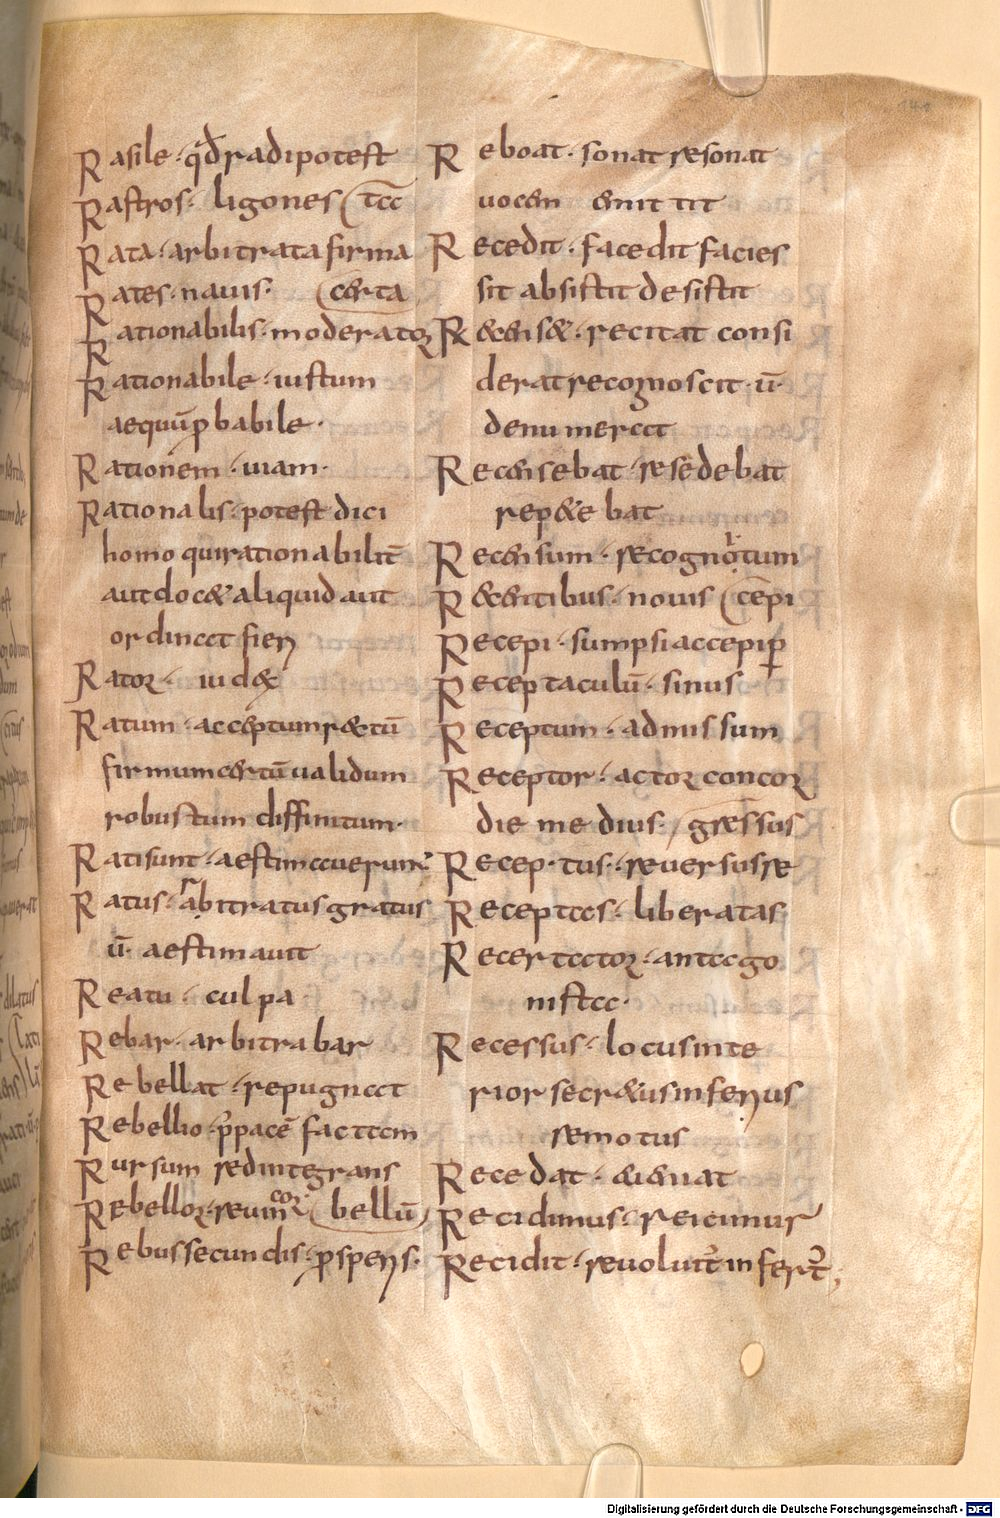 Rasile · qđ radi potest
Rastros · ligones (tcc
Rata · arbitrata firma
Rates · nauis · (certa
Rationabilis · moderator
Rationabile · iustum
aequū ꝓbabile ·
Rationem · uiam ·
Rationalis · potest dici
homo qui rationabilit̄
aut docet aliquid aut
ordinat fieri
Rator · iudex
Ratum · acceptum rectū
firmum certū ualidum
robustum diffinitum ·
Rati sunt · aestimauerunt
Ratus · arbitratus gratus
ū · aestimauit
Reatu · culpa
Rebar · arbitrabar
Rebellat · repugnat
Rebellio · p̄ pacē factam
Rursum redintegrans
Rebellor · (bellū
Rebus secundis · ꝓsperis ·
Reboat · sonat resonat
uocem emittit
Recedit · facedit facies
sit absistit desistit
Recenset · recitat consi
derat recognoscit · ū ·
denumerat
Recensebat · resedebat
repetebat
Recensum · recognitum
Recentibus · nouis (cēpi
Recepi · sumpsi accepi ꝑ
Receptaculū · sinus
Receptum · admissum
Receptor · actor concor
die medius · (gressus
Receptus · reuersus re
Receptas · liberatas
Recertator · antago
nista ·
Recessus · locus inte
rior secretus inferius
remotus
Recedat · euenat
Recidimus · reicimus
Recidit · reuoluit̉ in fert̉
Digitalisierung gefördert durch die Deutsche Forschungsgemeinschaft - DFG